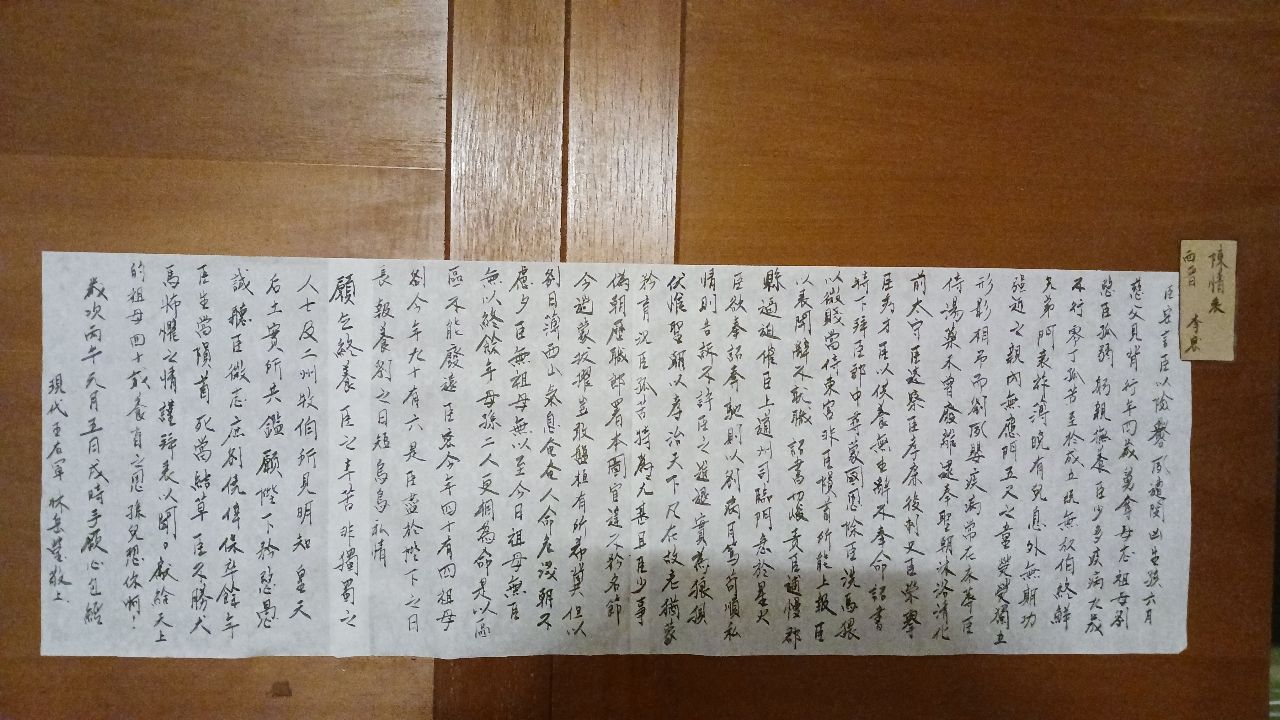 陳情表
西晉 李密
臣密言臣以險釁夙遭閔凶生孩六月
慈父見背行年四歲舅奪母志祖母劉
愍臣孤弱躬親撫養臣少多疾病九歲
不行零丁孤苦至於成立既無叔伯終鮮
兄弟門衰祚薄晚有兒息外無期功
強近之親內無應門五尺之童煢煢獨立
形影相吊而劉夙嬰疾病常在床蓐臣
侍湯藥未曾廢離逮奉聖朝沐浴清化
前太守臣逵察臣孝廉後刺史臣榮舉
臣秀才臣以供養無主辭不奉命詔書
特下拜臣郎中尋蒙國恩除臣洗馬猥
以微賤當侍東宮非臣隕首所能上報臣
以表聞辭不就職詔書切峻責臣逋慢郡
縣逼迫催臣上道州司臨門急於星火
臣欲奉詔奔馳則以劉病日篤苟順私
情則告訴不許臣之進退實為狼狽
伏惟聖朝以孝治天下凡在故老猶蒙
矜育況臣孤苦特為尤甚且臣少事
偽朝歷職郎署本圖宦達不矜名節
今過蒙拔擢豈敢盤桓有所希冀但以
劉日薄西山氣息奄奄人命危淺朝不
慮夕臣無祖母無以至今日祖母無臣
無以終餘年母孫二人更相為命是以區
區不能廢遠臣密今年四十有四祖母
劉今年九十有六是臣盡於陛下之日
長報養劉之日短烏鳥私情
願乞終養臣之辛苦非獨蜀之
人士及二州牧伯所見明知皇天
后土實所共鑑願陛下矜愍愚
誠聽臣微志庶劉僥倖保卒餘年
臣生當隕首死當結草臣不勝犬
馬怖懼之情謹拜表以聞。獻給天上
的祖母四十載養育之恩孫兒想你啊！
歲次丙午元月五日戌時手
現代王右軍 林無敬上